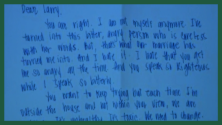 Dear Larry,
You are right. I am not myself anymore. I've
turned into this bitter, awful person who is careless
with her words. But, that's what our marriage has
turned me into. And I hate it. I hate that you get
to be so angry all the time and you speak so righteous
while I speak so bitterly.
You want to keep trying but each time I'm
outside the house and not within your view, we are
to change.